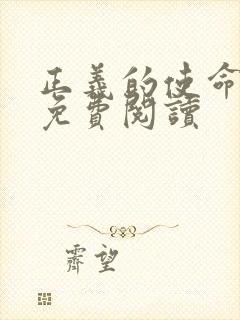 正義的使命
免費閱讀
霽望